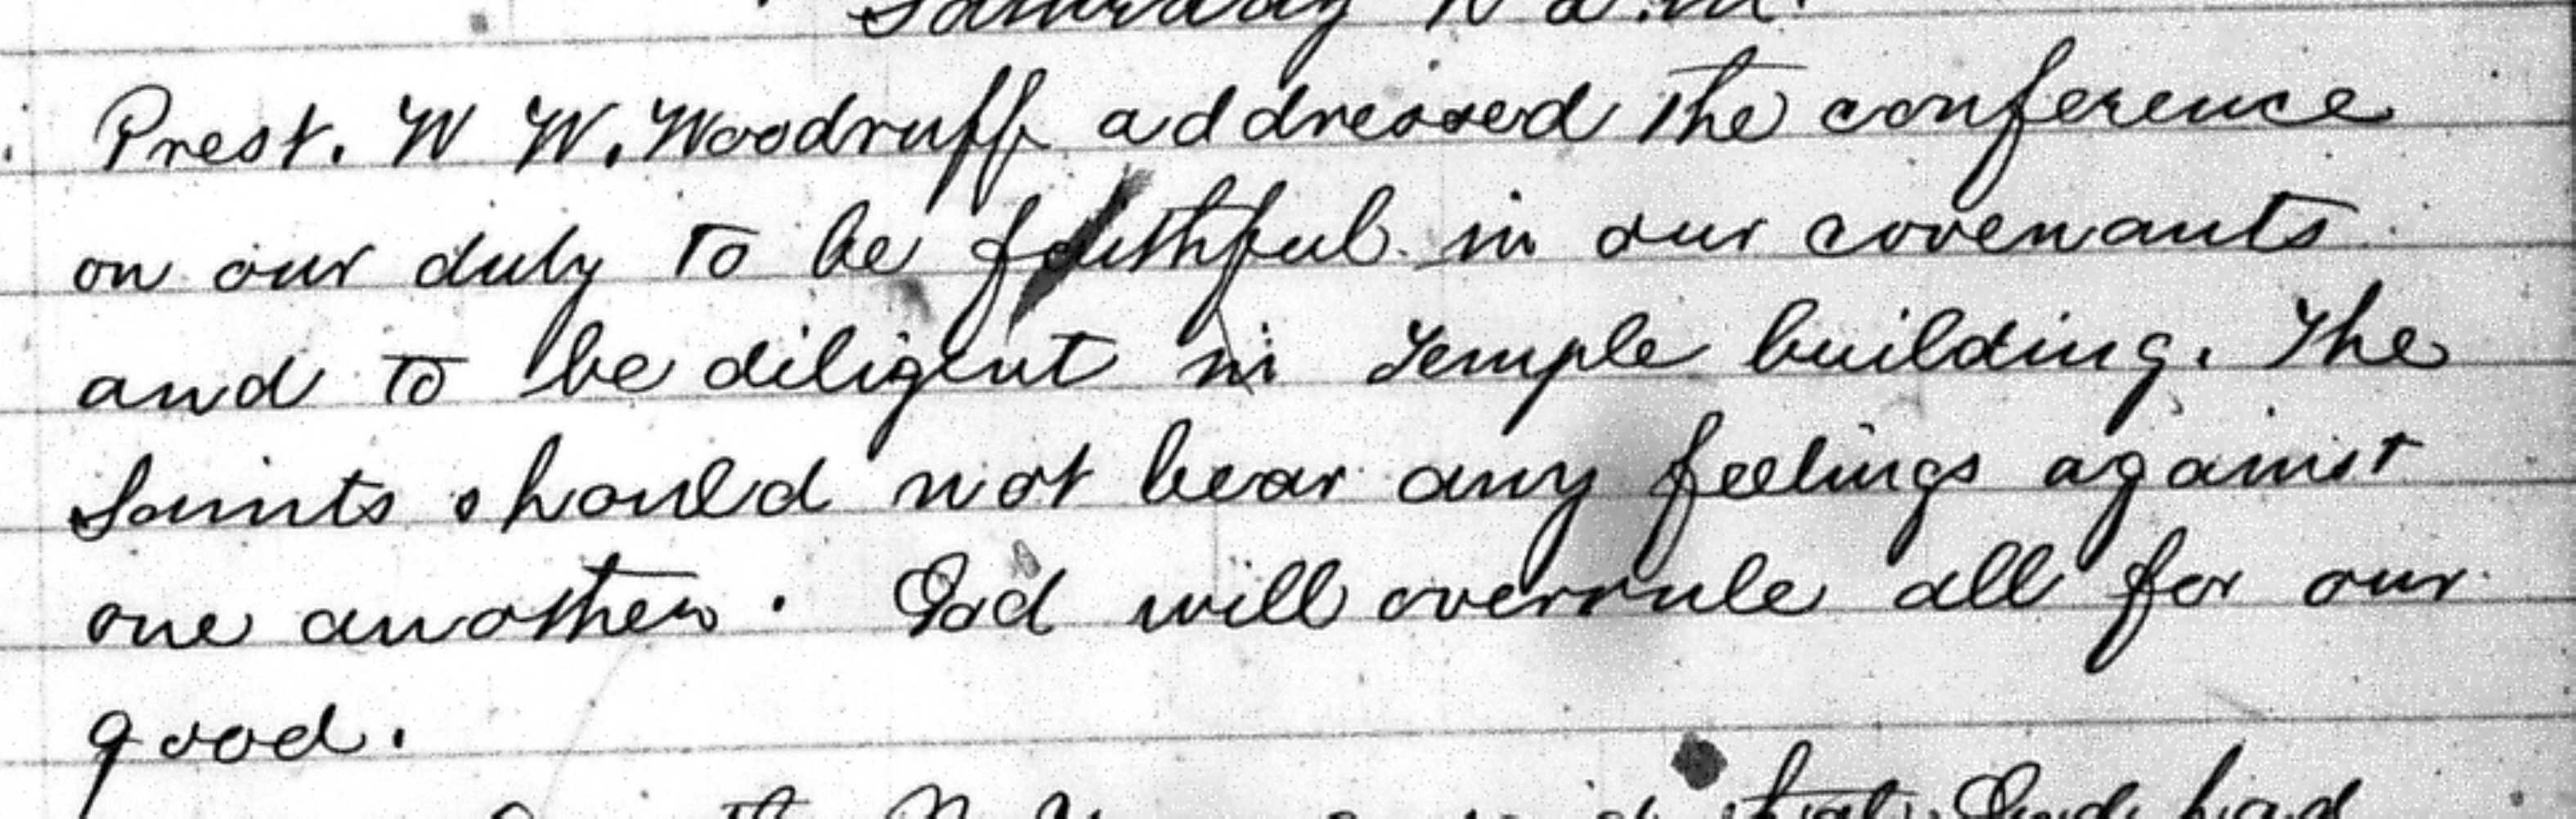 Saturday 10 a.m.
Prest. W W. Woodruff addressed the conference
on our duty to be faithful in our covenants
and to be diligent in Temple building. The
Saints should not bear any feelings against
one another. God will overrule all for our
good.
that God had